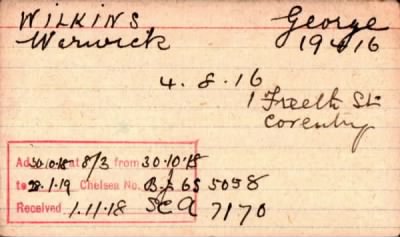 WILKINS George
Warwick 19416
4.8.16
1 Freeth St
Coventry
Ad 30.10.18 at 8/3 from 30.10.18
to 28.1.19 Chelsea No. 65 5058
Received 1.11.18 7170